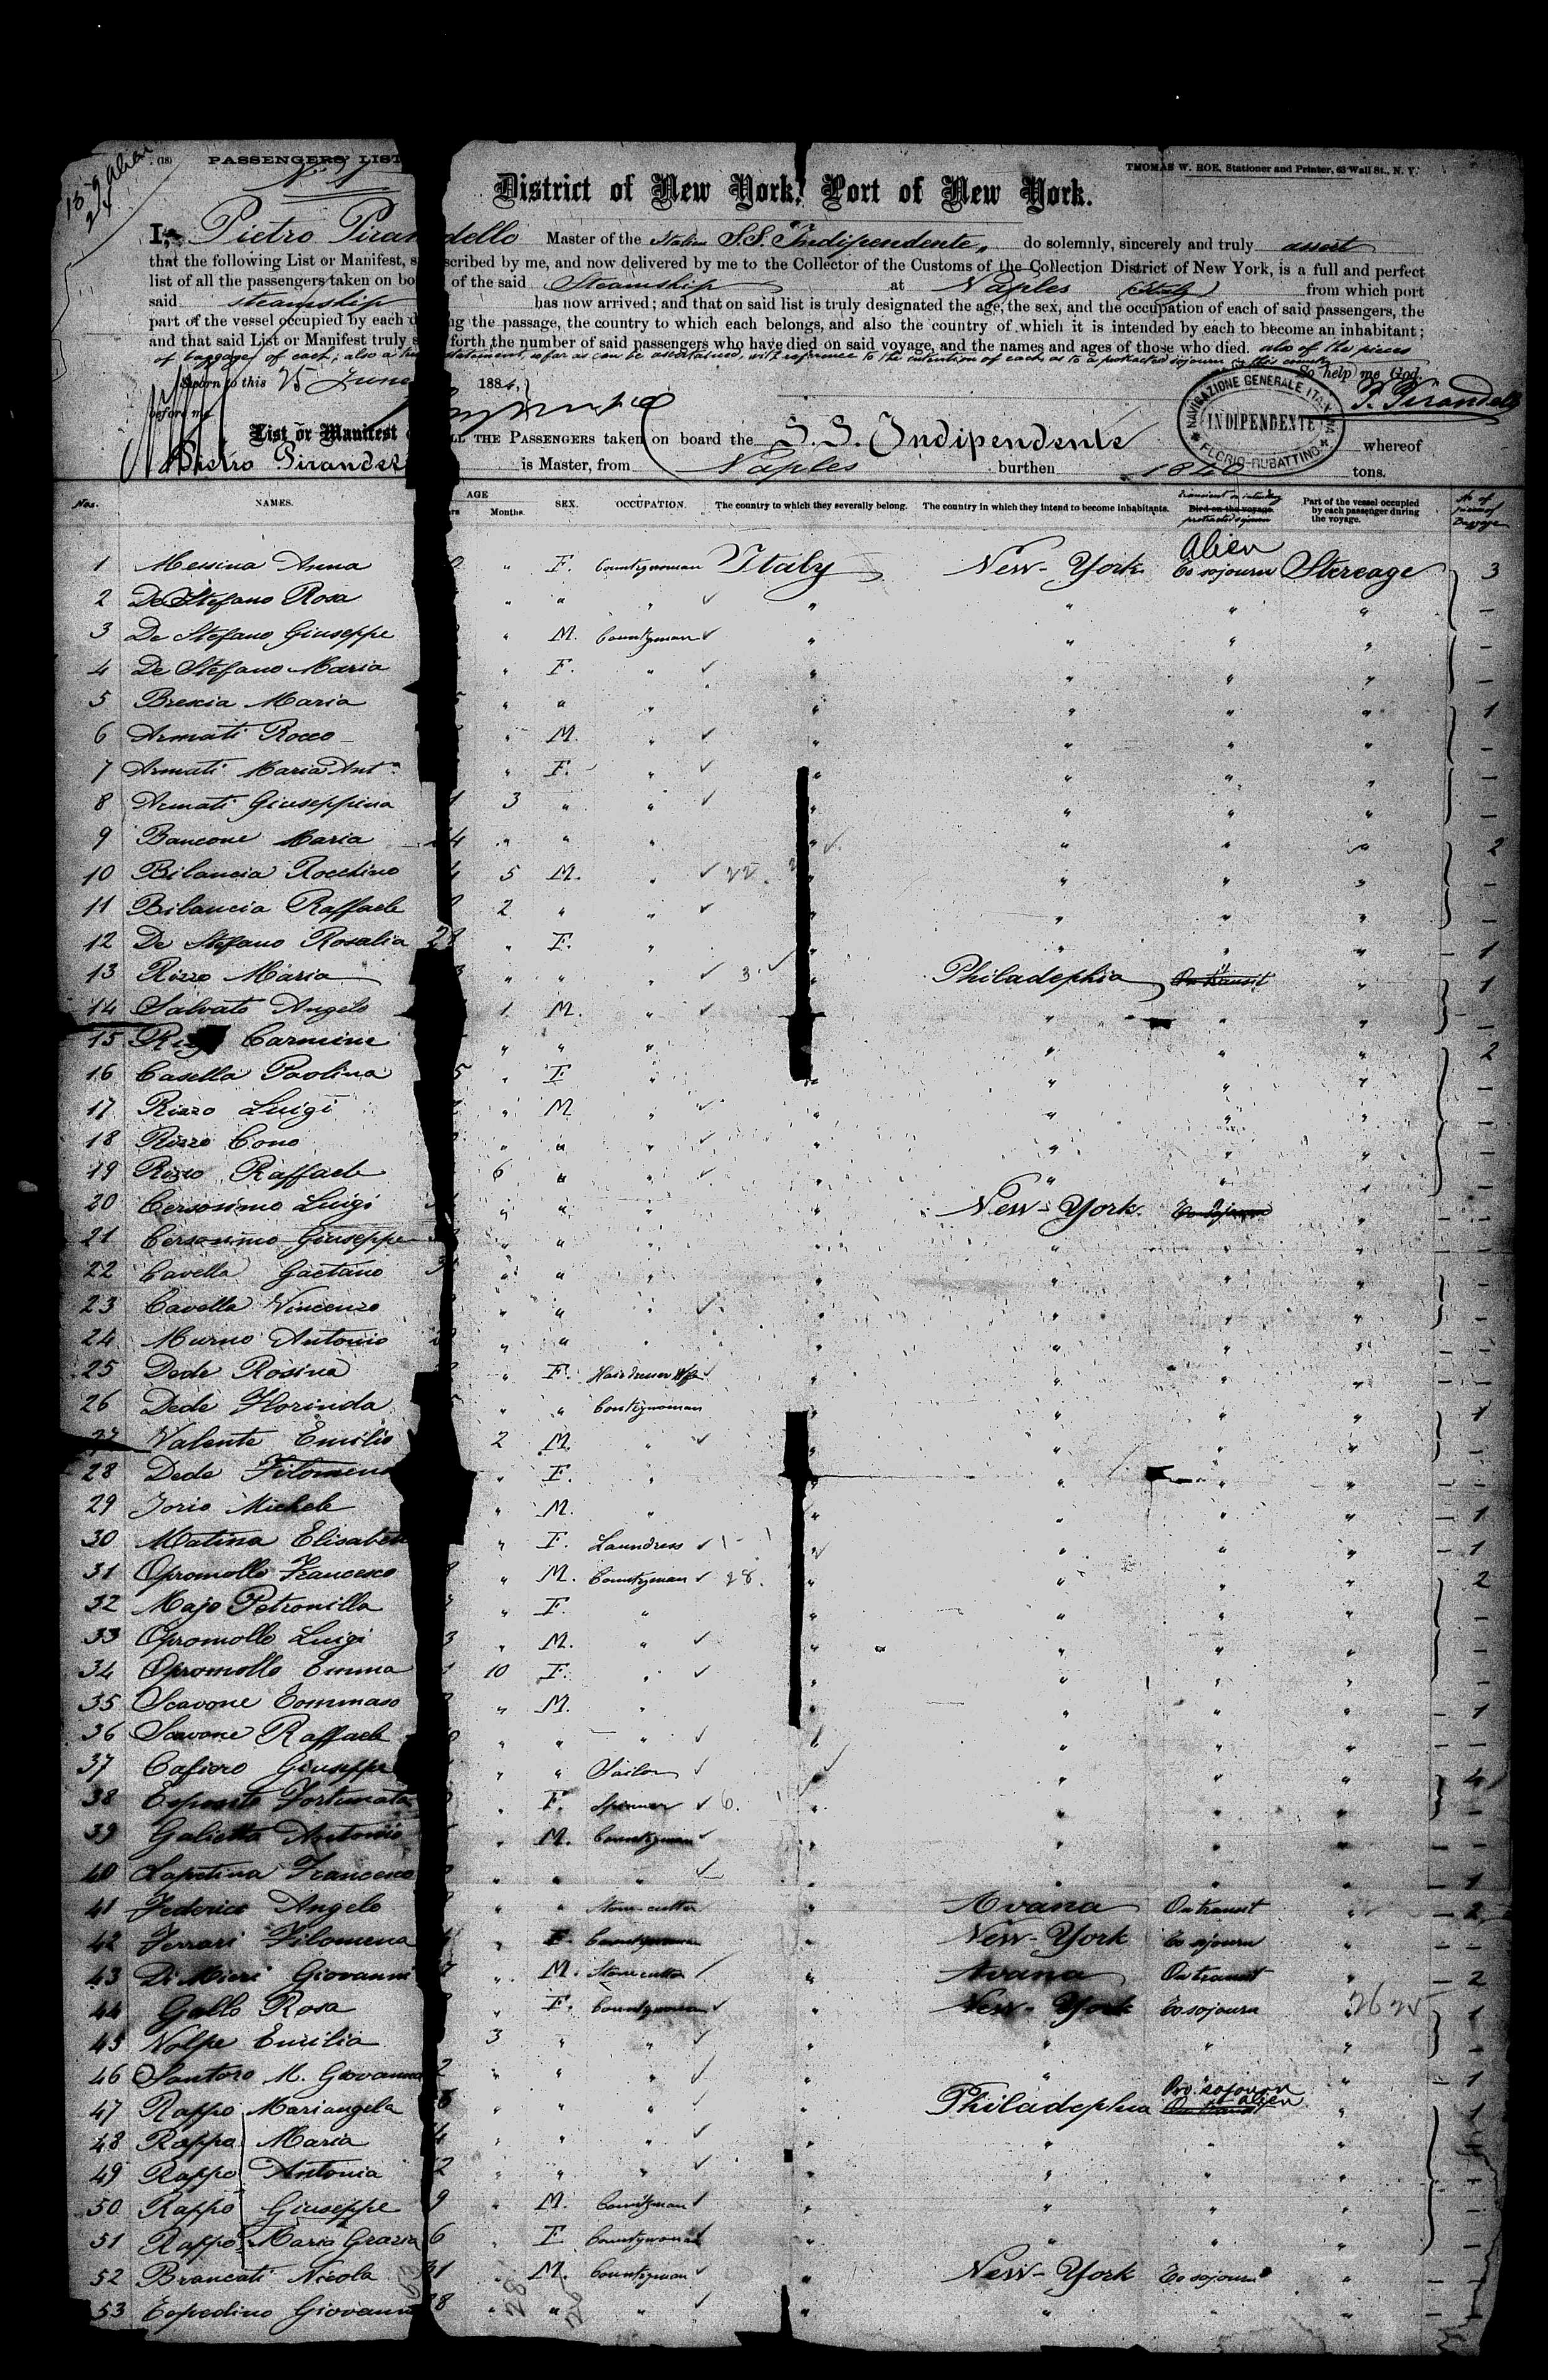 18-9 alien
(18) PASSENGERS' LIST
THOMAS W. ROE, Stationer and Printer, 63 Wall St., N. Y.
District of New York, Port of New York.
I, Pietro Piran dello Master of the Italian S.S. Indipendente, do solemnly, sincerely and truly assert
that the following List or Manifest, s scribed by me, and now delivered by me to the Collector of the Customs of the Collection District of New York, is a full and perfect
list of all the passengers taken on bo of the said Steamship at Naples (Italy) from which port
said steamship has now arrived; and that on said list is truly designated the age, the sex, and the occupation of each of said passengers, the
part of the vessel occupied by each d ng the passage, the country to which each belongs, and also the country of which it is intended by each to become an inhabitant;
and that said List or Manifest truly s forth the number of said passengers who have died on said voyage, and the names and ages of those who died. also of the pieces
of baggage of each; also a true statement, so far as can be ascertained, with reference to the intention of each as to a protracted sojourn in this country
So help me God.
Sworn to this 25 June 188
before me
P. Pirandello
NAVIGAZIONE GENERALE ITALIANA INDIPENDENTE FLORIO-RUBATTINO
List or Manifest LL THE PASSENGERS taken on board the S.S. Indipendente whereof
Pietro Pirandel is Master, from Naples burthen 1840 tons.
Nos. NAMES. AGE Months. SEX. OCCUPATION. The country to which they severally belong. The country in which they intend to become inhabitants. Transient or intending protracted sojourn Died on the voyage. Part of the vessel occupied by each passenger during the voyage. No of pieces of Baggage
Alien
1 Messina Anna " F. Countrywoman Italy New-York To sojourn Steerage 3
2 De Stefano Rosa " " " " " " " -
3 De Stefano Giuseppe " M. Countryman " " " " -
4 De Stefano Maria " F. " " " " " -
5 Brescia Maria " " " " " " " 1
6 Armati Rocco " M. " " " " " -
7 Armati Maria Ant.a " F. " " " " " -
8 Armati Giuseppina 1 3 " " " " " " -
9 Bancone Maria 4 " " " " " " " 2
10 Bilancia Rocchino 4 5 M. " " " " " -
11 Bilancia Raffaele 2 " " " " " " -
12 De Stefano Rosalia 28 " F. " " " " " 1
13 Rizzo Maria 3 " " " 3 " Philadephia On transit " 1
14 Salvato Angelo 1 M. " " " " " -
15 Carmine " " " " " " " 2
16 Casella Paolina 5 " F " " " " " -
17 Rizzo Luigi " M " " " " " -
18 Rizzo Cono " " " " " " " -
19 Rizzo Raffaele 6 " " " " " " -
20 Cersosimo Luigi " " " " New-York. To sojourn " -
21 Cersosimo Giuseppe " " " " " " -
22 Cavella Gaetano 3 " " " " " " -
23 Cavella Vincenzo " " " " " " " -
24 Murno Antonio " " " " " " " -
25 Dede Rosina " F. Hairdresser Wife " " " " -
26 Dede Florinda " " Countrywoman " " " " 1
27 Valente Emilio 2 M. " " " " " -
28 Dede Filomena " F. " " " " " -
29 Iorio Michele " M. " " " " " 1
30 Matina Elisabet " F. Laundress " " " " 1
31 Opromollo Francesco " M. Countryman 28. " " " " 2
32 Majo Petronilla " F. " " " " " -
33 Opromollo Luigi 3 " M. " " " " " -
34 Opromollo Emma 10 F. " " " " " -
35 Scavone Tommaso " M. " " " " " 1
36 Scavone Raffaele " " " " " " " -
37 Cafiero Giuseppe " " Sailor " " " " 4
38 Esposito Fortunata " F. Spinner 6. " " " " -
39 Galietta Antonio " M. Countryman " " " " -
40 Lapetina Francesco " " " " " " " 1
41 Federico Angelo " " Stone cutter " Avana On transit " 2
42 Ferrari Filomena " F. Countrywoman " New-York To sojourn " -
43 Di Mieri Giovanni 7 " M. Stonecutter " Avana On transit " 2
44 Gallo Rosa " F. Countrywoman " New-York To sojourn " 1
45 Volpe Emilia 3 " " " " " " -
46 Santoro M. Giovanna 2 " " " " " " " 1
47 Rappo Mariangela " " " " Philadephia Pro. sojourn alien On transit " 1
48 Rappo Maria 4 " " " " " " " -
49 Rappo Antonia 2 " " " " " " " -
50 Rappo Giuseppe 9 " M. Countryman " " " " -
51 Rappo Maria Grazia 6 " F Countrywoman " " " " -
52 Brancati Nicola 31 " M. Countryman " New-York To sojourn " -
53 Topedino Giovanni 28 " " " " " " " -